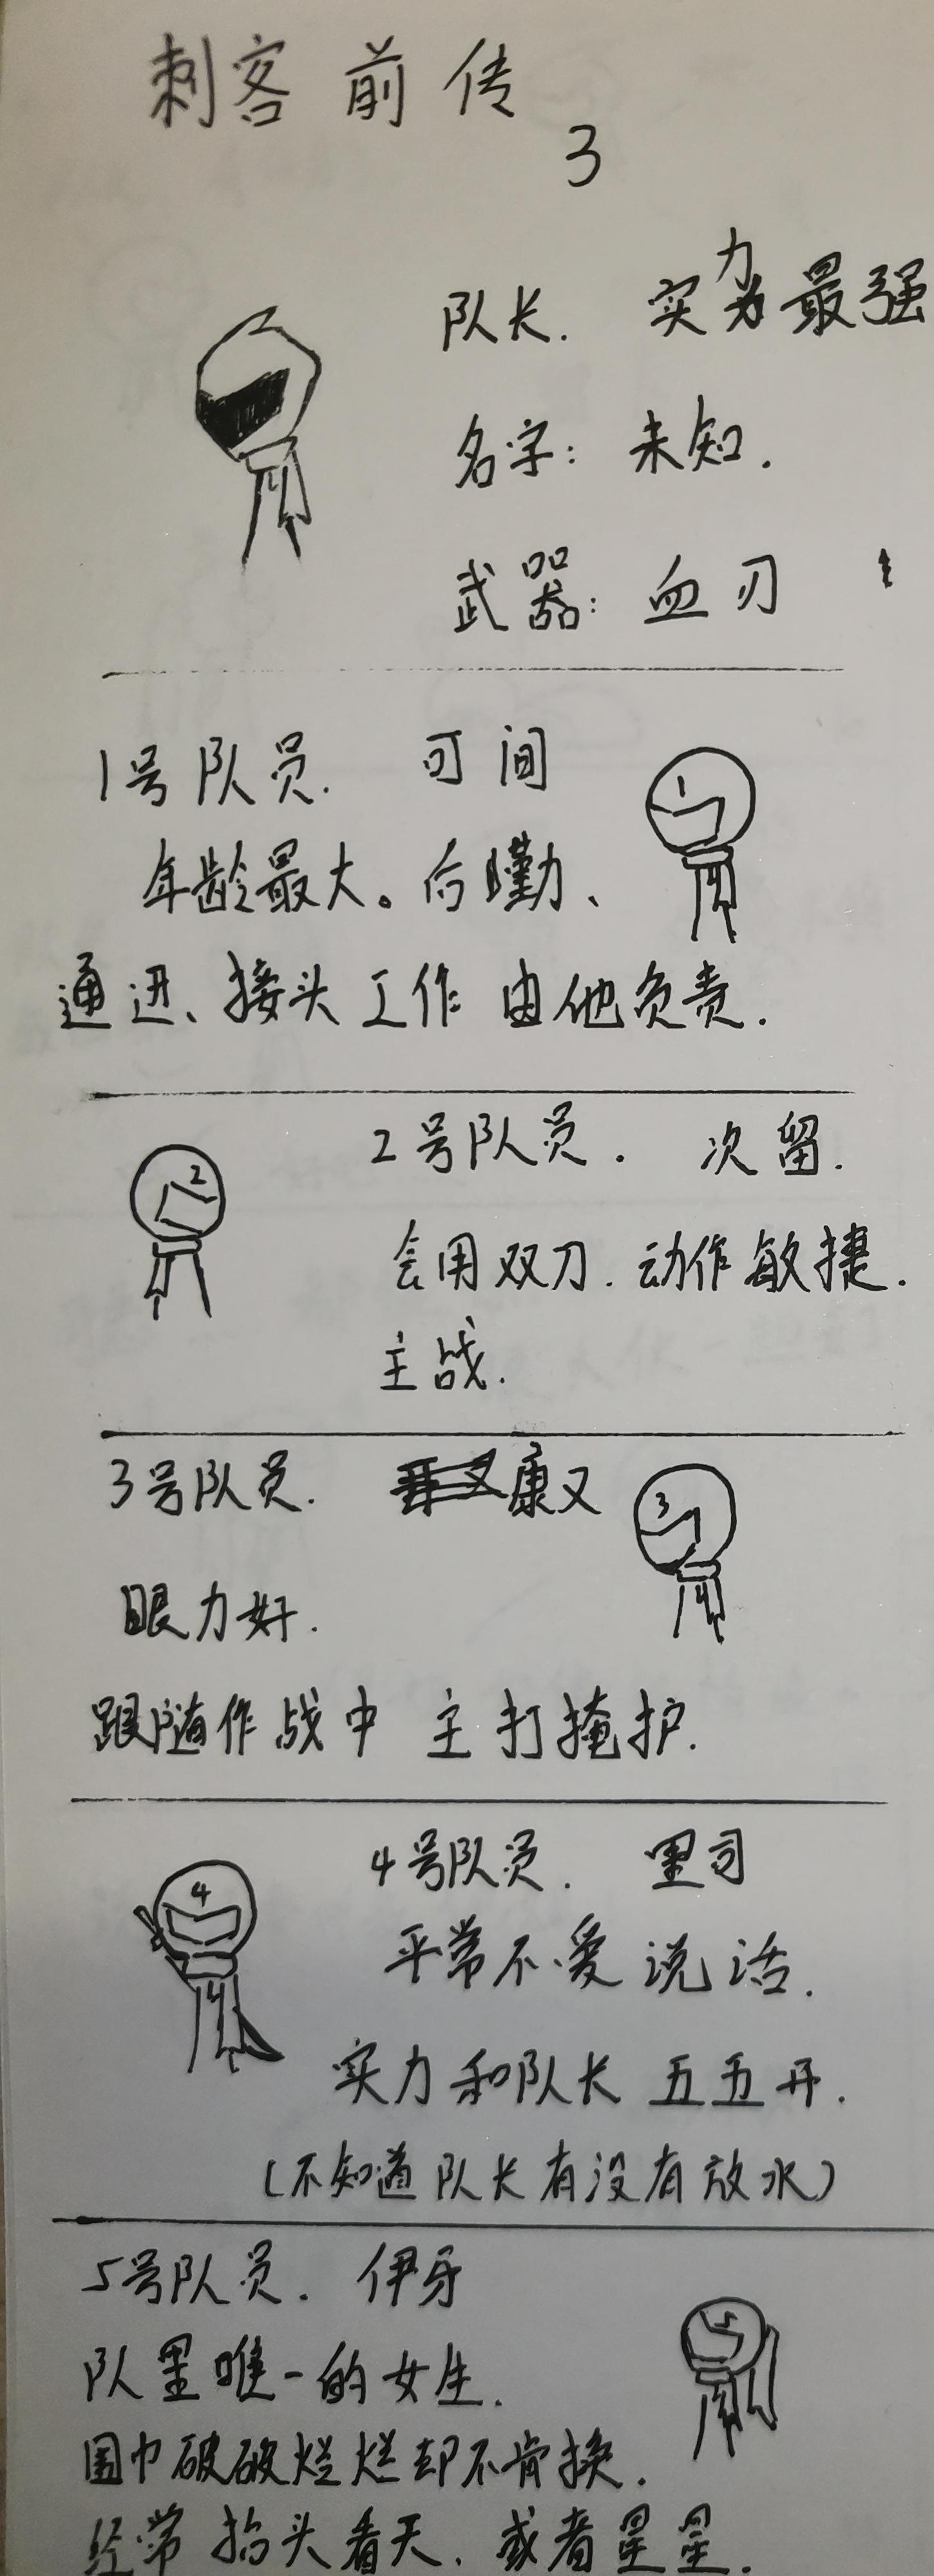 刺客前传
3
队长. 实力最强
名字: 未知.
武器: 血刃
1号队员. 可间
年龄最大。后勤、
通讯、接头工作由他负责.
2号队员. 次留.
会用双刀. 动作敏捷.
主战.
3号队员. 康又
眼力好.
跟随作战中 主打掩护.
4号队员. 里司
平常不爱说话.
实力和队长五五开.
(不知道队长有没有放水)
5号队员. 伊牙
队里唯一的女生.
围巾破破烂烂却不肯换.
经常抬头看天. 或者星星.
1
2
3
4
5